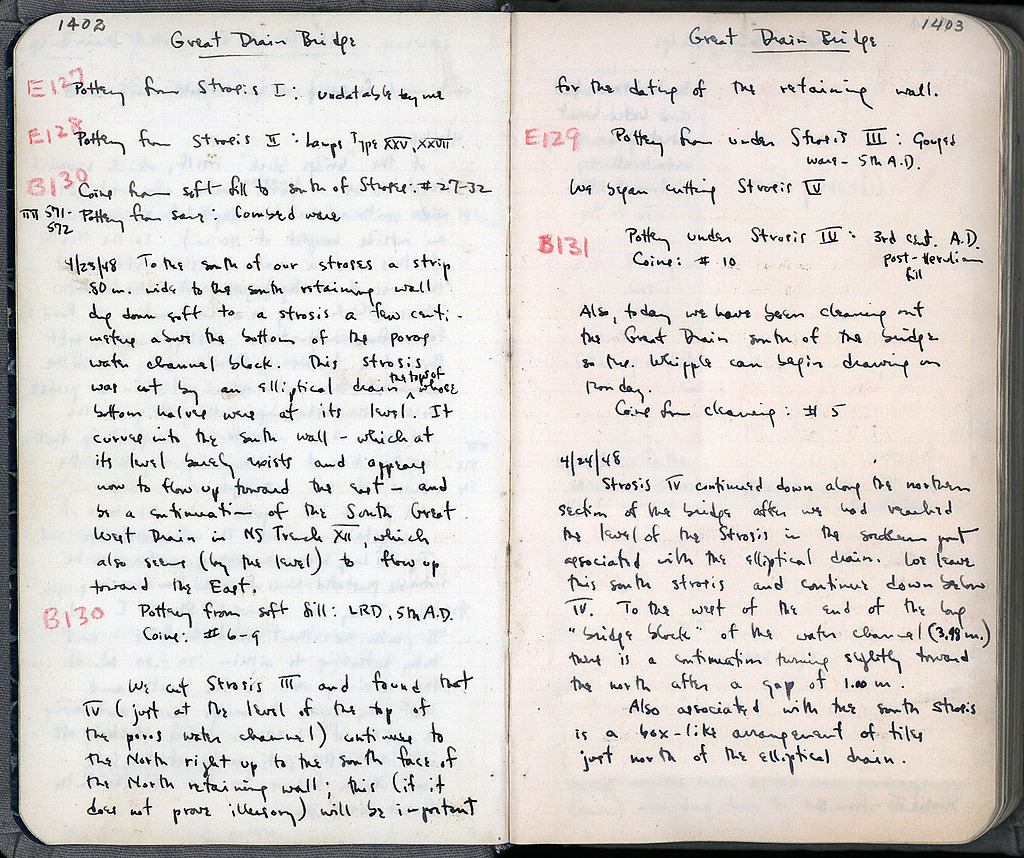 1402
Great Drain Bridge
E127 Pottery from Strosis I: undatable by me
E128 Pottery from Strosis II: Lamps Type XXV, XXVII
B130 Coins from soft fill to south of Stroses: #27-32
III 571-572 Pottery from same: Combed ware
4/23/48 To the south of our stroses a strip
.80 m. wide to the south retaining wall
dug down soft to a strosis a few centi-
meters above the bottom of the poros
water channel block. This strosis
was cut by an elliptical drain, the tops of whose
bottom halves were at its level. It
curves into the south wall - which at
its level barely exists and appears
now to flow up toward the east - and
be a continuation of the South Great
West Drain in NS Trench XII which
also seems (by the level) to flow up
toward the East.
B130 Pottery from soft fill: LRD, 5th A.D.
Coins: #6-9
We cut Strosis III and found that
IV (just at the level of the top of
the poros water channel) continues to
the North right up to the south face of
the North retaining wall; this (if it
does not prove illusory) will be important
1403
Great Drain Bridge
for the dating of the retaining wall.
E129 Pottery from under Strosis III: Gouged
ware - 5th A.D.
We began cutting Strosis IV
B131 Pottery under Strosis IV: 3rd cent. A.D.
Coins: #10 post-Herulian
fill
Also, today we have been cleaning out
the Great Drain south of the bridge
so Mr. Whipple can begin drawing on
Monday.
Coins from cleaning: #5
4/24/48
Strosis IV continued down along the northern
section of the bridge after we had reached
the level of the Strosis in the southern part
associated with the elliptical drain. We leave
this south strosis and continue down below
IV. To the west of the end of the long
"bridge block" of the water channel (3.98 m.)
there is a continuation turning slightly toward
the north after a gap of 1.00 m.
Also associated with the south strosis
is a box-like arrangement of tiles
just north of the elliptical drain.